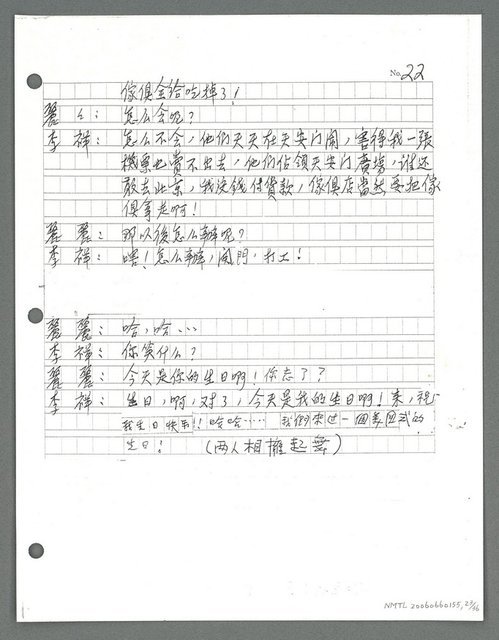 No. 22
傢俱全給吃掉了!
麗麗: 怎么会呢?
李祥: 怎么不会,他们天天在天安门鬧,害得我一張
機票也賣不出去,他们佔領天安门廣場,谁还
敢去北京,我没錢付貸款,傢俱店當然要把傢
俱拿走啊!
麗麗: 那以後怎么辦呢?
李祥: 嗐!怎么辦,関門,打工!
麗麗: 哈,哈…
李祥: 你笑什么?
麗麗: 今天是你的生日啊!你忘了?
李祥: 生日,啊,对了,今天是我的生日啊!来,祝
我生日快乐!!哈哈…… 我們來过一個美国式的
生日! (两人相擁起舞)
NMTL 20060660155, 23/26